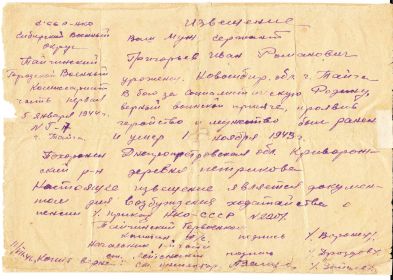 Извещение
С С С Р - НКО
Сибирский Военный
Округ
Тайгинский
Городской Военный
Комиссариат
часть первая
5 января 1944 г.
г. Тайга
Ваш муж, сержант
Григорьев Иван Романович
урожен. Новосибир. обл. г. Тайга
В бою за социалистическую Родину,
верный воинской присяге, проявив
геройство и мужество был ранен
и умер 1 ноября 1943 г.
Похоронен Днепропетровская обл. Криворож-
ский р-н деревня
Настоящее извещение является докумен-
том для возбуждения ходатайства о
пенсии / приказ НКО-СССР №
Тайгинский Горвоенком
подпись
Начальник 1-й части
подпись
Копия верна: